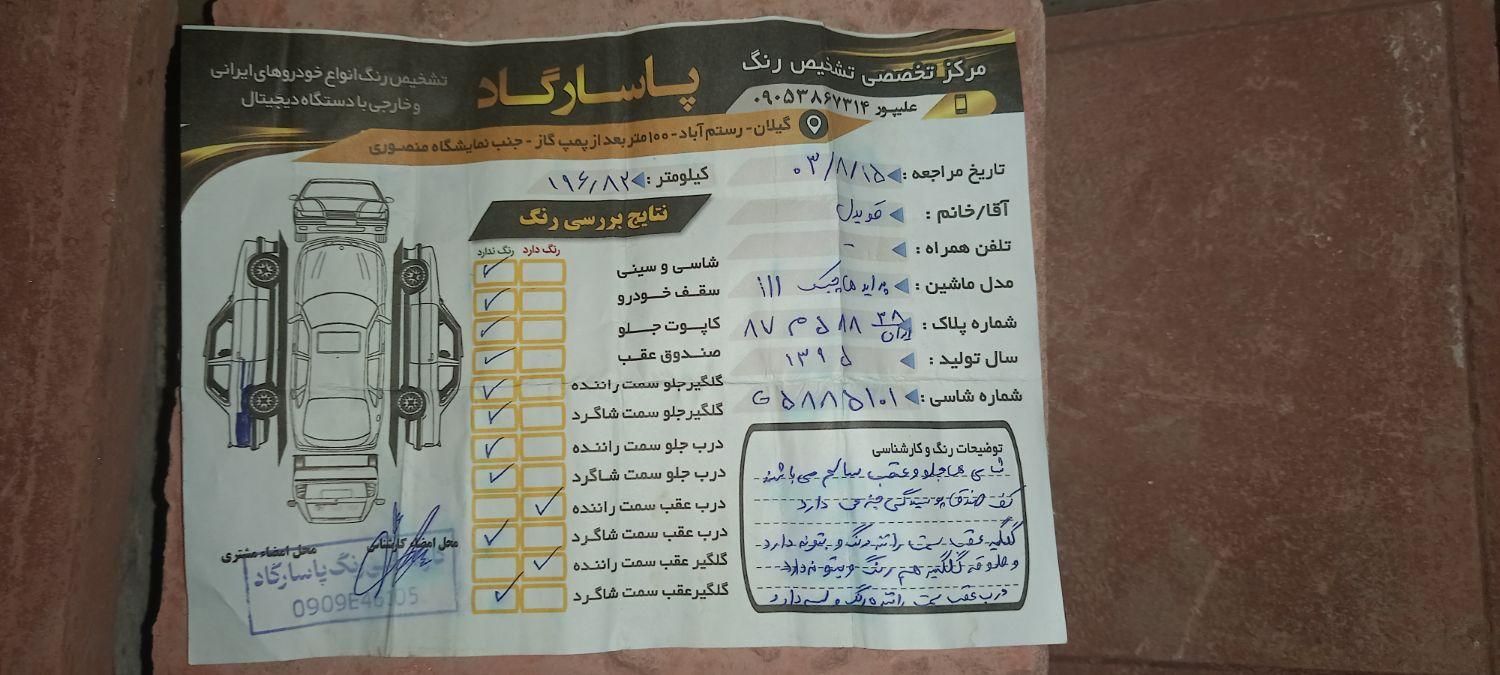 مرکز تخصصی تشخیص رنگ
پاسارگاد
تشخیص رنگ انواع خودروهای ایرانی
و خارجی با دستگاه دیجیتال
علیپور ۰۹۰۵۳۸۶۷۳۱۴
گیلان - رستم آباد - ۱۰۰ متر بعد از پمپ گاز - جنب نمایشگاه منصوری
تاریخ مراجعه : ۰۳/۸/۱۵
کیلومتر : ۱۹۶٫۸۲
آقا/خانم : قویدل
تلفن همراه : -
مدل ماشین : پراید هاچبک ۱۱۱
شماره پلاک : ۳۸ ایران ۵۸۸ م ۸۷
سال تولید : ۱۳۹۵
شماره شاسی : G۵۸۸۵۱۰۱
نتایج بررسی رنگ
رنگ دارد رنگ ندارد
شاسی و سینی ✓
سقف خودرو ✓
کاپوت جلو ✓
صندوق عقب ✓
گلگیر جلو سمت راننده ✓
گلگیر جلو سمت شاگرد ✓
درب جلو سمت راننده ✓
درب جلو سمت شاگرد ✓
درب عقب سمت راننده ✓
درب عقب سمت شاگرد ✓
گلگیر عقب سمت راننده ✓
گلگیر عقب سمت شاگرد ✓
توضیحات رنگ و کارشناسی
شاسی ها جلو و عقب سالم می باشند
کف صندوق پوسیدگی جزئی دارد
گلگیر عقب سمت راننده رنگ و بتونه دارد
و گلگیر هم رنگ و بتونه دارد
درب عقب سمت راننده رنگ و لیسه دارد
محل امضاء کارشناسی
محل امضاء مشتری
رنگ پاسارگاد